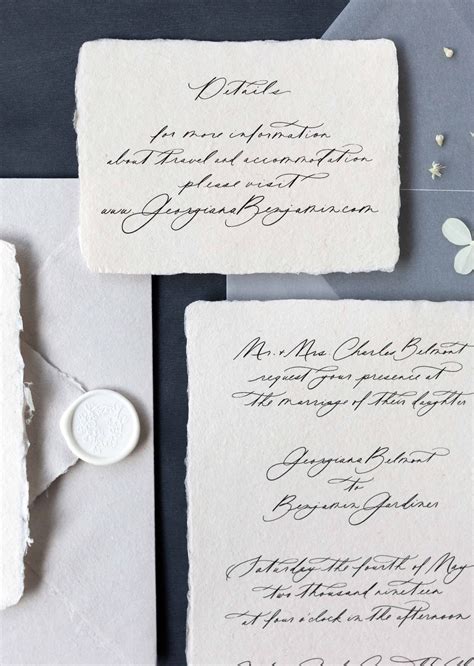 Details
for more information
about travel and accommodation
please visit
www.GeorgianaBenjamin.com
Mr. & Mrs. Charles Belmont
request your presence at
the marriage of their daughter
Georgiana Belmont
to
Benjamin Gardiner
Saturday the fourth of May
two thousand nineteen
at four o'clock in the afternoon